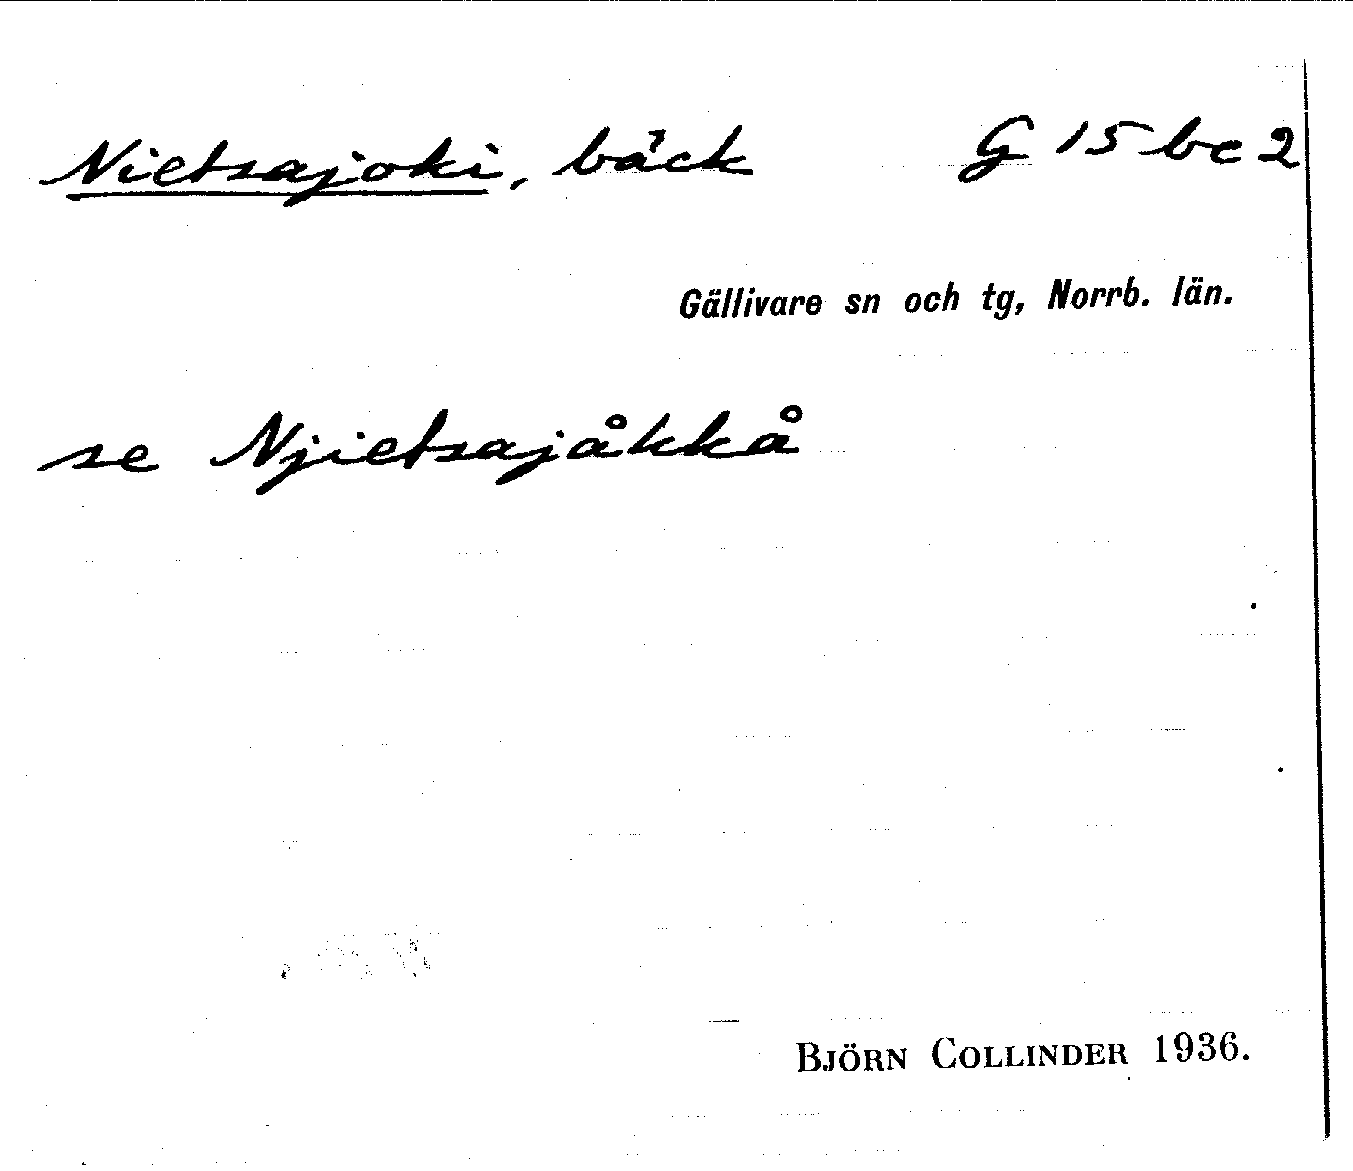 Nietsajoki, bäck G 15 bc 2
Gällivare sn och tg, Norrb. län.
se Njietsajåkkå
BJÖRN COLLINDER 1936.